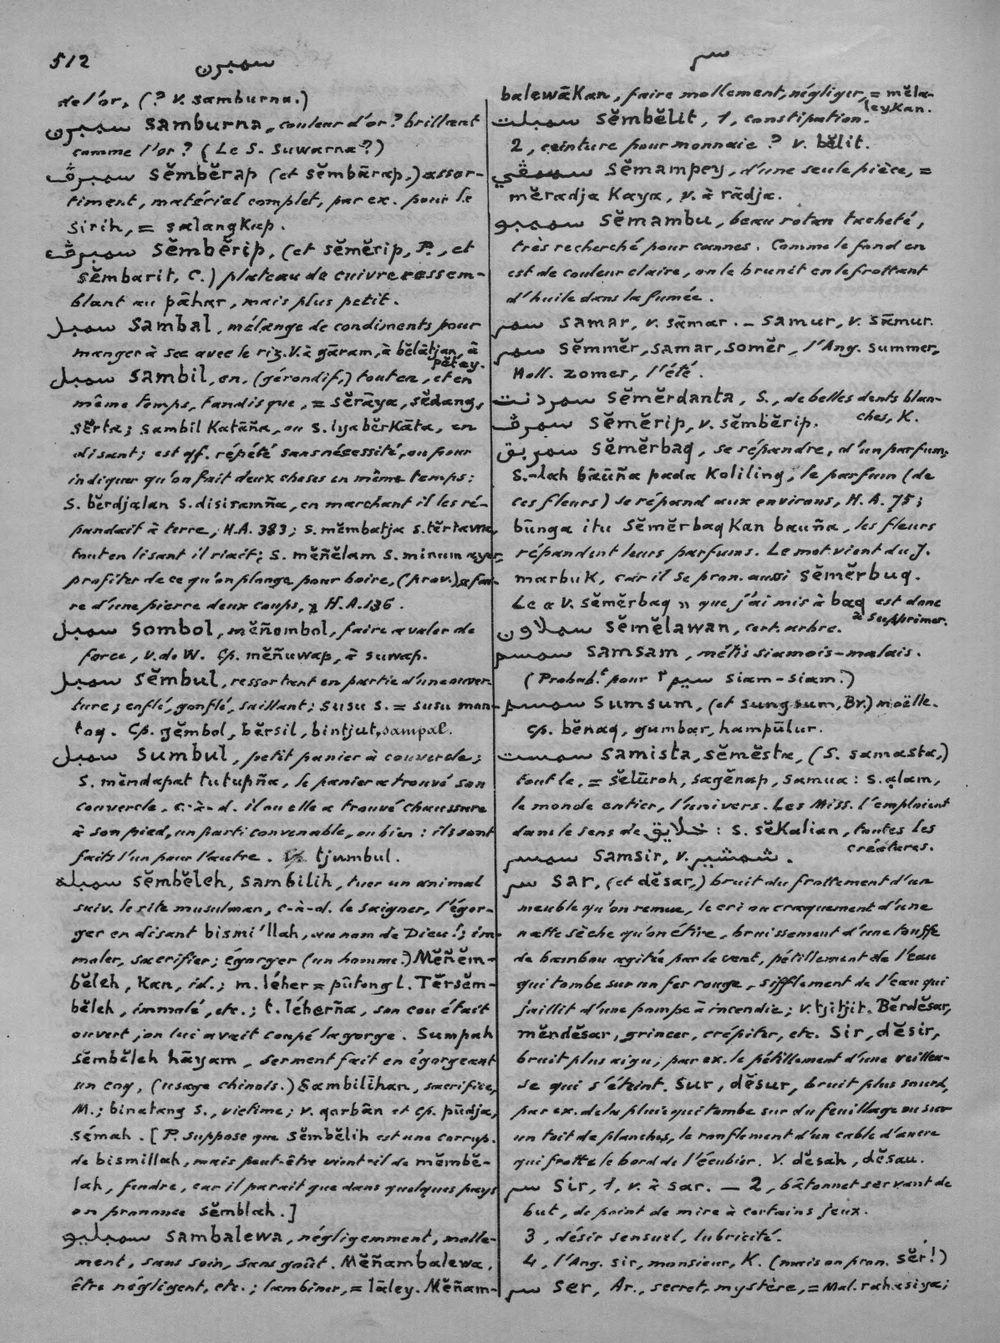 512
سمبرن
سر
de l'or, (? v. samburna.)
سمبرن samburna, couleur d'or? brillant
comme l'or? (Le S. suwarna?)
سمبرڤ sĕmbĕrap (et sĕmbārap,) assor-
timent, matériel complet, par ex. pour le
sirih, = salangkap.
سمبرڤ sĕmbĕrip, (et sĕmĕrip, P., et
sĕmbarit, C.) plateau de cuivre ressem-
blant au pāhar, mais plus petit.
سمبل sambal, mélange de condiments pour
manger à sec avec le riz. V. à gāram, à bĕlātjan, à
pĕtey.
سمبل sambil, en, (gérondif,) tout en, et en
même temps, tandis que, = sĕrāya, sĕdang,
sĕrta; sambil katāña, ou s. iya bĕrkāta, en
disant; est qf. répété sans nécessité, ou pour
indiquer qu'on fait deux choses en même temps:
s. bĕrdjalan s. disiramña, en marchant il les ré-
pandait à terre, H.A. 383; s. mĕmbatja s. tĕrtawa,
tout en lisant il riait; s. mĕñĕlam s. minum ayer,
profiter de ce qu'on plonge pour boire, (prov.) = fai-
re d'une pierre deux coups, H.A. 136.
سمبل sombol, mĕñombol, faire avaler de
force, v. de W. Cp. mĕñuwap, à suwap.
سمبل sĕmbul, ressortant en partie d'une ouver-
ture; enflé, gonflé, saillant; susu s. = susu mon-
toq. Cp. gĕmbol, bĕrsil, bintjut, sampal.
سمبل sumbul, petit panier à couvercle;
s. mĕndapat tutupña, le panier a trouvé son
couvercle, c.-à-d. il ou elle a trouvé chaussure
à son pied, un parti convenable, ou bien: ils sont
faits l'un pour l'autre. Cp. tjumbul.
سمبله sĕmbĕleh, sambilih, tuer un animal
suiv. le rite musulman, c-à-d. le saigner, l'égor-
ger en disant bismi'llah, au nom de Dieu!; im-
moler, sacrifier; égorger (un homme.) Mĕñĕm-
bĕleh, kan, id.; m. léher = pūtong l. Tĕrsĕm-
bĕleh, immolé, etc.; t. léherña, son cou était
ouvert, on lui avait coupé la gorge. Sumpah
sĕmbĕleh hāyam, serment fait en égorgeant
un coq, (usage chinois.) Sambilīhan, sacrifice,
M.; binatang s., victime; v. qorbān et cp. pūdja,
sémah. [P. suppose que sĕmbĕlih est une corrup.
de bismillah, mais peut-être vient-il de mĕmbĕ-
lah, fendre, car il parait que dans quelques pays
on prononce sĕmblah.]
سمبليو sambalewa, négligemment, molle-
ment, sans soin, sans goût. Mĕñambalewa,
être négligent, etc.; lambiner, = lāley. Mĕñam-
balewākan, faire mollement, négliger, = mĕla-
leykan.
سمبلت sĕmbĕlit, 1, constipation.
2, ceinture pour monnaie? v. bĕlit.
سممڤي sĕmampey, d'une seule pièce, =
mĕradja kaya, v. à rādja.
سممبو sĕmambu, beau rotan tacheté,
très recherché pour cannes. Comme le fond en
est de couleur claire, on le brunit en le frottant
d'huile dans la fumée.
سمر samar, v. sāmar. — samur, v. sāmur.
سمر sĕmmĕr, samar, somĕr, l'Ang. summer,
Holl. zomer, l'été.
سمردنت sĕmĕrdanta, S., de belles dents blan-
ches, K.
سمرڤ sĕmĕrip, v. sĕmbĕrip.
سمربق sĕmĕrbaq, se répandre, d'un parfum,
s.-lah bāūña pada koliling, le parfum (de
ces fleurs) se répand aux environs, H.A. 75;
būnga itu sĕmĕrbaqkan bauña, les fleurs
répandent leurs parfums. Le mot vient du J.
marbuk, car il se pron. aussi sĕmĕrbuq.
Le « v. sĕmĕrbaq » que j'ai mis à baq est donc
à supprimer.
سملاون sĕmĕlawan, cert. arbre.
سمسم samsam, métis siamois-malais.
(Probab.t pour سيم ٢ siam-siam?)
سمسم sumsum, (et sungsum, Br.) moëlle.
Cp. bĕnaq, gumbar, hampūlur.
سمست samista, sĕmĕsta, (S. samasta,)
tout le, = sĕlūroh, sagĕnap, samua: s. alam,
le monde entier, l'univers. Les Miss. l'emploient
dans le sens de خلايق: s. sĕkalian, toutes les
créatures.
سمسر samsir, v. شمشير.
سر sar, (et dĕsar,) bruit du frottement d'un
meuble qu'on remue, le cri ou craquement d'une
natte sèche qu'on étire, bruissement d'une touffe
de bambou agitée par le vent, pétillement de l'eau
qui tombe sur un fer rouge, sifflement de l'eau qui
jaillit d'une pompe à incendie; v. tjitjit. Bĕrdĕsar,
mĕndĕsar, grincer, crépiter, etc. Sir, dĕsir,
bruit plus aigu, par ex. le pétillement d'une veilleu-
se qui s'éteint. Sur, dĕsur, bruit plus sourd,
par ex. de la pluie qui tombe sur du feuillage ou sur
un toit de planches, le ronflement d'un cable d'ancre
qui frotte le bord de l'écubier. V. dĕsah, dĕsau.
سر sir, 1, v. à sar. — 2, bâtonnet servant de
but, de point de mire à certains jeux.
3, désir sensuel, lubricité.
4, l'Ang. sir, monsieur, K. (mais on pron. sĕr!)
سر ser, Ar., secret, mystère, = Mal. rahasiya;